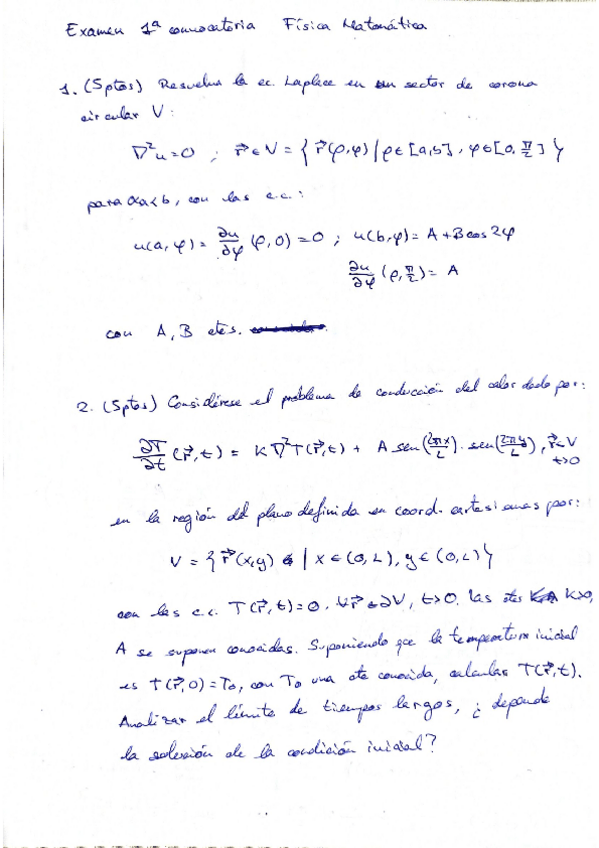 Examen 1ª convocatoria Física Matemática
1. (5ptos) Resuelva la ec. Laplace en un sector de corona
circular V:
∇²u=0 ; r⃗∈V={r⃗(ρ,φ)/ρ∈[a,b], φ∈[0,π/2]}
para 0<a<b, con las c.c.:
u(a,φ)= ∂u/∂φ (ρ,0)=0 ; u(b,φ)= A+Bcos2φ
∂u/∂φ (ρ,π/2)= A
con A, B ctes.
2. (5ptos) Considérese el problema de conducción del calor dado por:
∂T/∂t (r⃗,t) = K∇²T(r⃗,t) + A sen(2πx/L) · sen(2πy/L), r⃗∈V
t>0
en la región del plano definida en coord. cartesianas por:
V = {r⃗(x,y) / x∈(0,L), y∈(0,L)}
con las c.c. T(r⃗,t)=0. ∀r⃗∈∂V, t>0. las ctes K>0,
A se suponen conocidas. Suponiendo que la temperatura inicial
es T(r⃗,0)=T₀, con T₀ una cte conocida, calcular T(r⃗,t).
Analizar el límite de tiempos largos, ¿depende
la solución de la condición inicial?